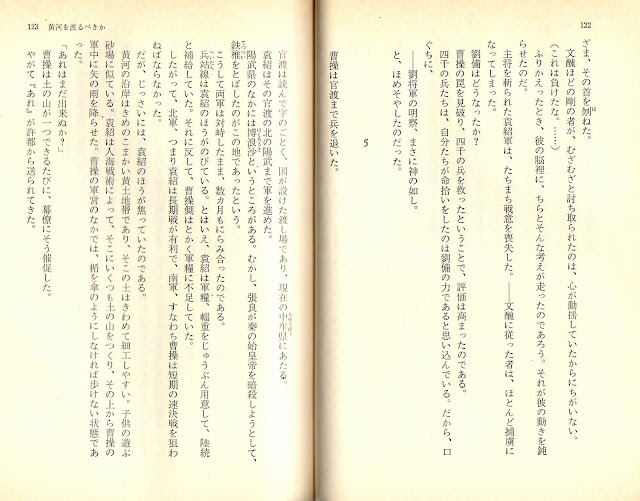 122
ざま、その首を刎ねた。
文醜ほどの剛の者が、むざむざと討ち取られたのは、心が動揺していたからにちがいない。
(これは負けたな。……)
ふりかえったとき、彼の脳裡に、ちらとそんな考えが走ったのであろう。それが彼の動きを鈍
らせたのだ。
主将を斬られた袁紹軍は、たちまち戦意を喪失した。――文醜に従った者は、ほとんど捕虜に
なってしまった。
劉備はどうなったか?
曹操の罠を見破り、四千の兵を救ったということで、評価は高まったのである。
四千の兵たちは、自分たちが命拾いをしたのは劉備の力であると思い込んでいる。だから、口
ぐちに、
――劉将軍の明察、まさに神の如し。
と、ほめそやしたのだった。
5
曹操は官渡まで兵を退いた。
123 黄河を渡るべきか
官渡は読んで字のごとく、国が設けた渡し場であり、現在の中牟県にあたる。
袁紹はその官渡の北の陽武まで軍を進めた。
陽武県のなかには博浪沙というところがある。むかし、張良が秦の始皇帝を暗殺しようとして、
鉄椎をとばしたのがこの地であったという。
こうして両軍は対峙したまま、数カ月もにらみ合ったのである。
兵站線は袁紹のほうがのびている。とはいえ、袁紹は軍糧、輜重をじゅうぶん用意して、陸続
と補給していた。それに反して、曹操側はとかく軍糧に不足していた。
したがって、北軍、つまり袁紹は長期戦が有利で、南軍、すなわち曹操は短期の速決戦を狙わ
ねばならなかった。
だが、じっさいには、袁紹のほうが焦っていたのである。
黄河の沿岸はきめのこまかい黄土地帯であり、そこの土はきわめて細工しやすい。子供の遊ぶ
砂場に似ている。袁紹は人海戦術によって、そこにいくつも土の山をつくり、その上から曹操の
軍中に矢の雨を降らせた。曹操の軍営のなかでは、楯を傘のようにしなければ歩けない状態であ
った。
「あれはまだ出来ぬか?」
曹操は土の山が一つできるたびに、幕僚にそう催促した。
やがて『あれ』が許都から送られてきた。